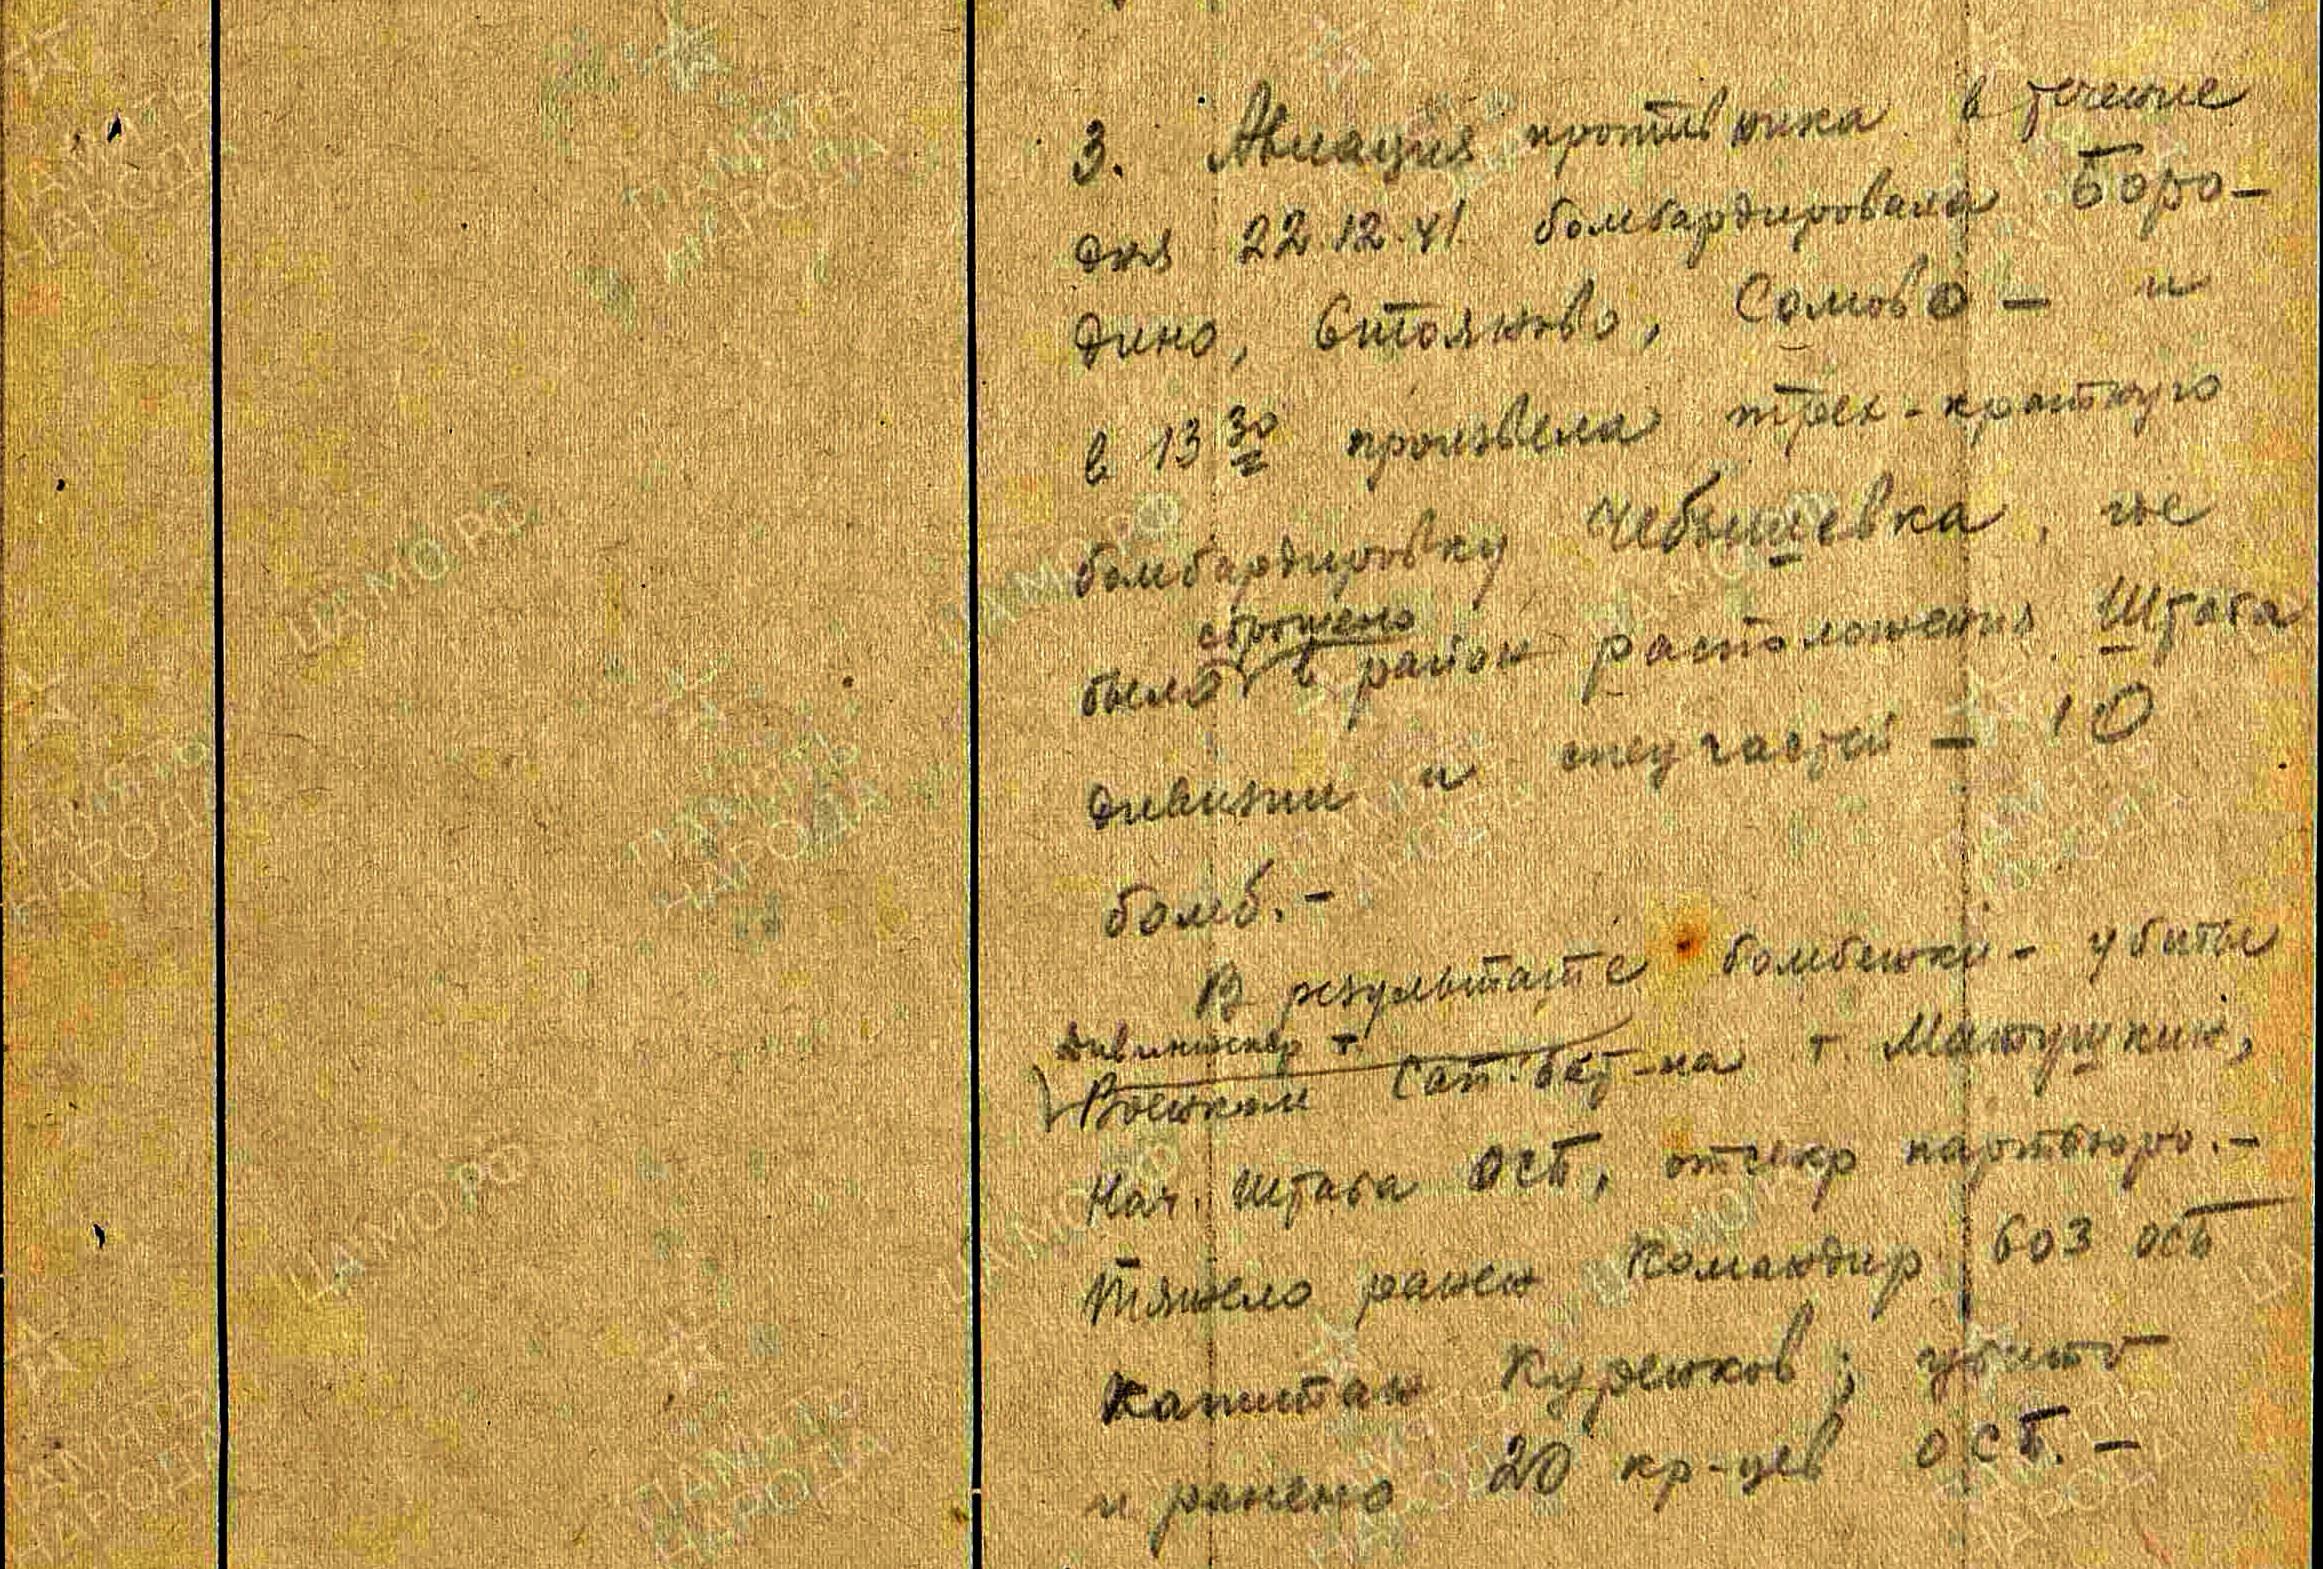 3. Авиация противника в течение
дня 22.12.41 бомбардировала Боро-
дино, Стояново, Сомово – и
в 13 30 произвела трех-кратную
бомбардировку Чебышевка, где
сброшено
было в район расположения Штаба
дивизии и спецчастей – 10
бомб. –
В результате бомбежки – убиты
дивинженер т.
Военком Сап. бат-на т. Матушкин,
Нач. Штаба ОСБ, отсекр партбюро. –
Тяжело ранен командир 603 ОСБ
капитан Куренков; убито
и ранено 20 кр-цев ОСБ. –
ЦАМО РФ
ПАМЯТЬ
НАРОДА